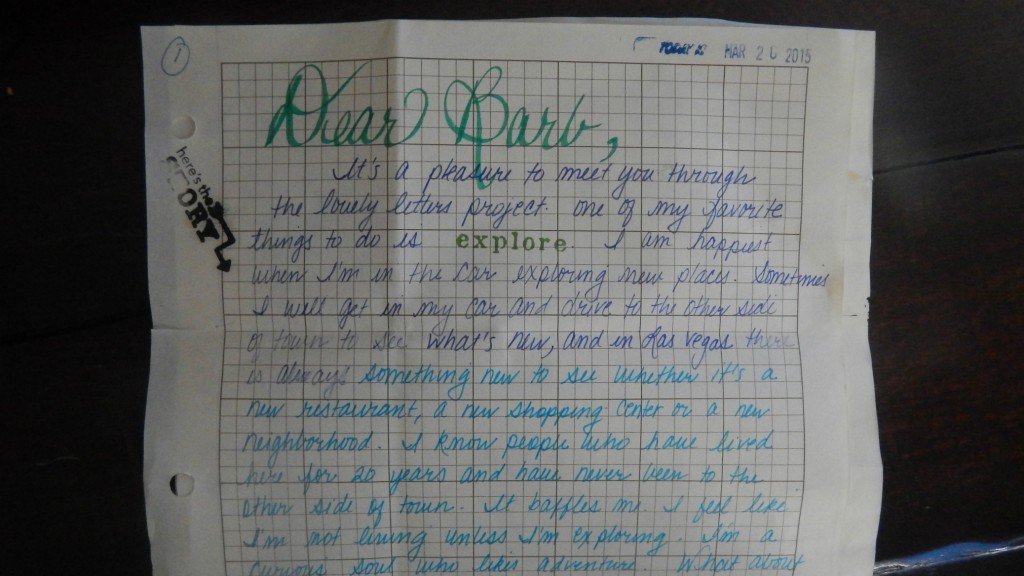 1
TODAY IS MAR 20 2015
here's the
STORY
Dear Barb,
It's a pleasure to meet you through
the lovely letters project. One of my favorite
things to do is explore. I am happiest
when I'm in the car exploring new places. Sometimes
I will get in my car and drive to the other side
of town to see what's new, and in Las Vegas there
is always something new to see whether it's a
new restaurant, a new shopping center or a new
neighborhood. I know people who have lived
here for 20 years and have never been to the
other side of town. It baffles me. I feel like
I'm not living unless I'm exploring. I'm a
curious soul who likes adventure. What about